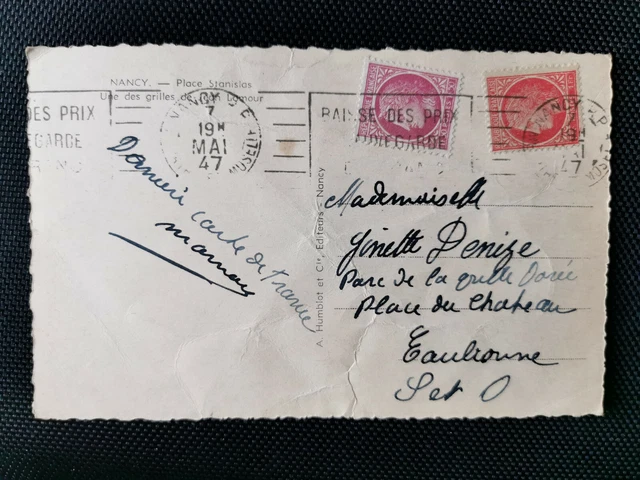 NANCY. — Place Stanislas
Une des grilles de Jean Lamour
DES PRIX
EGARDE
NANCY
7
19H
MAI
47
BAISSE DES PRIX
EGARDE
NANCY
19H
47
Dernière carte de France
maman
A. Humblot et Cie, Editeurs - Nancy
Mademoiselle
Ginette Denize
Parc de la grille Dorée
Place du Chateau
Eaubonne
S et O